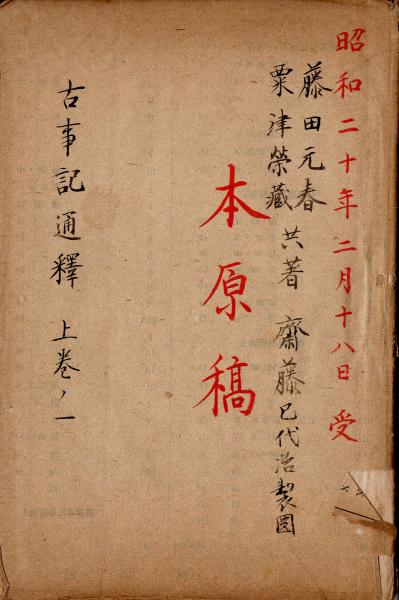 昭和二十年二月十八日 受
藤田元春
粟津榮藏
共著 齋藤已代治製圖
本原稿
古事記通釋 上巻ノ一